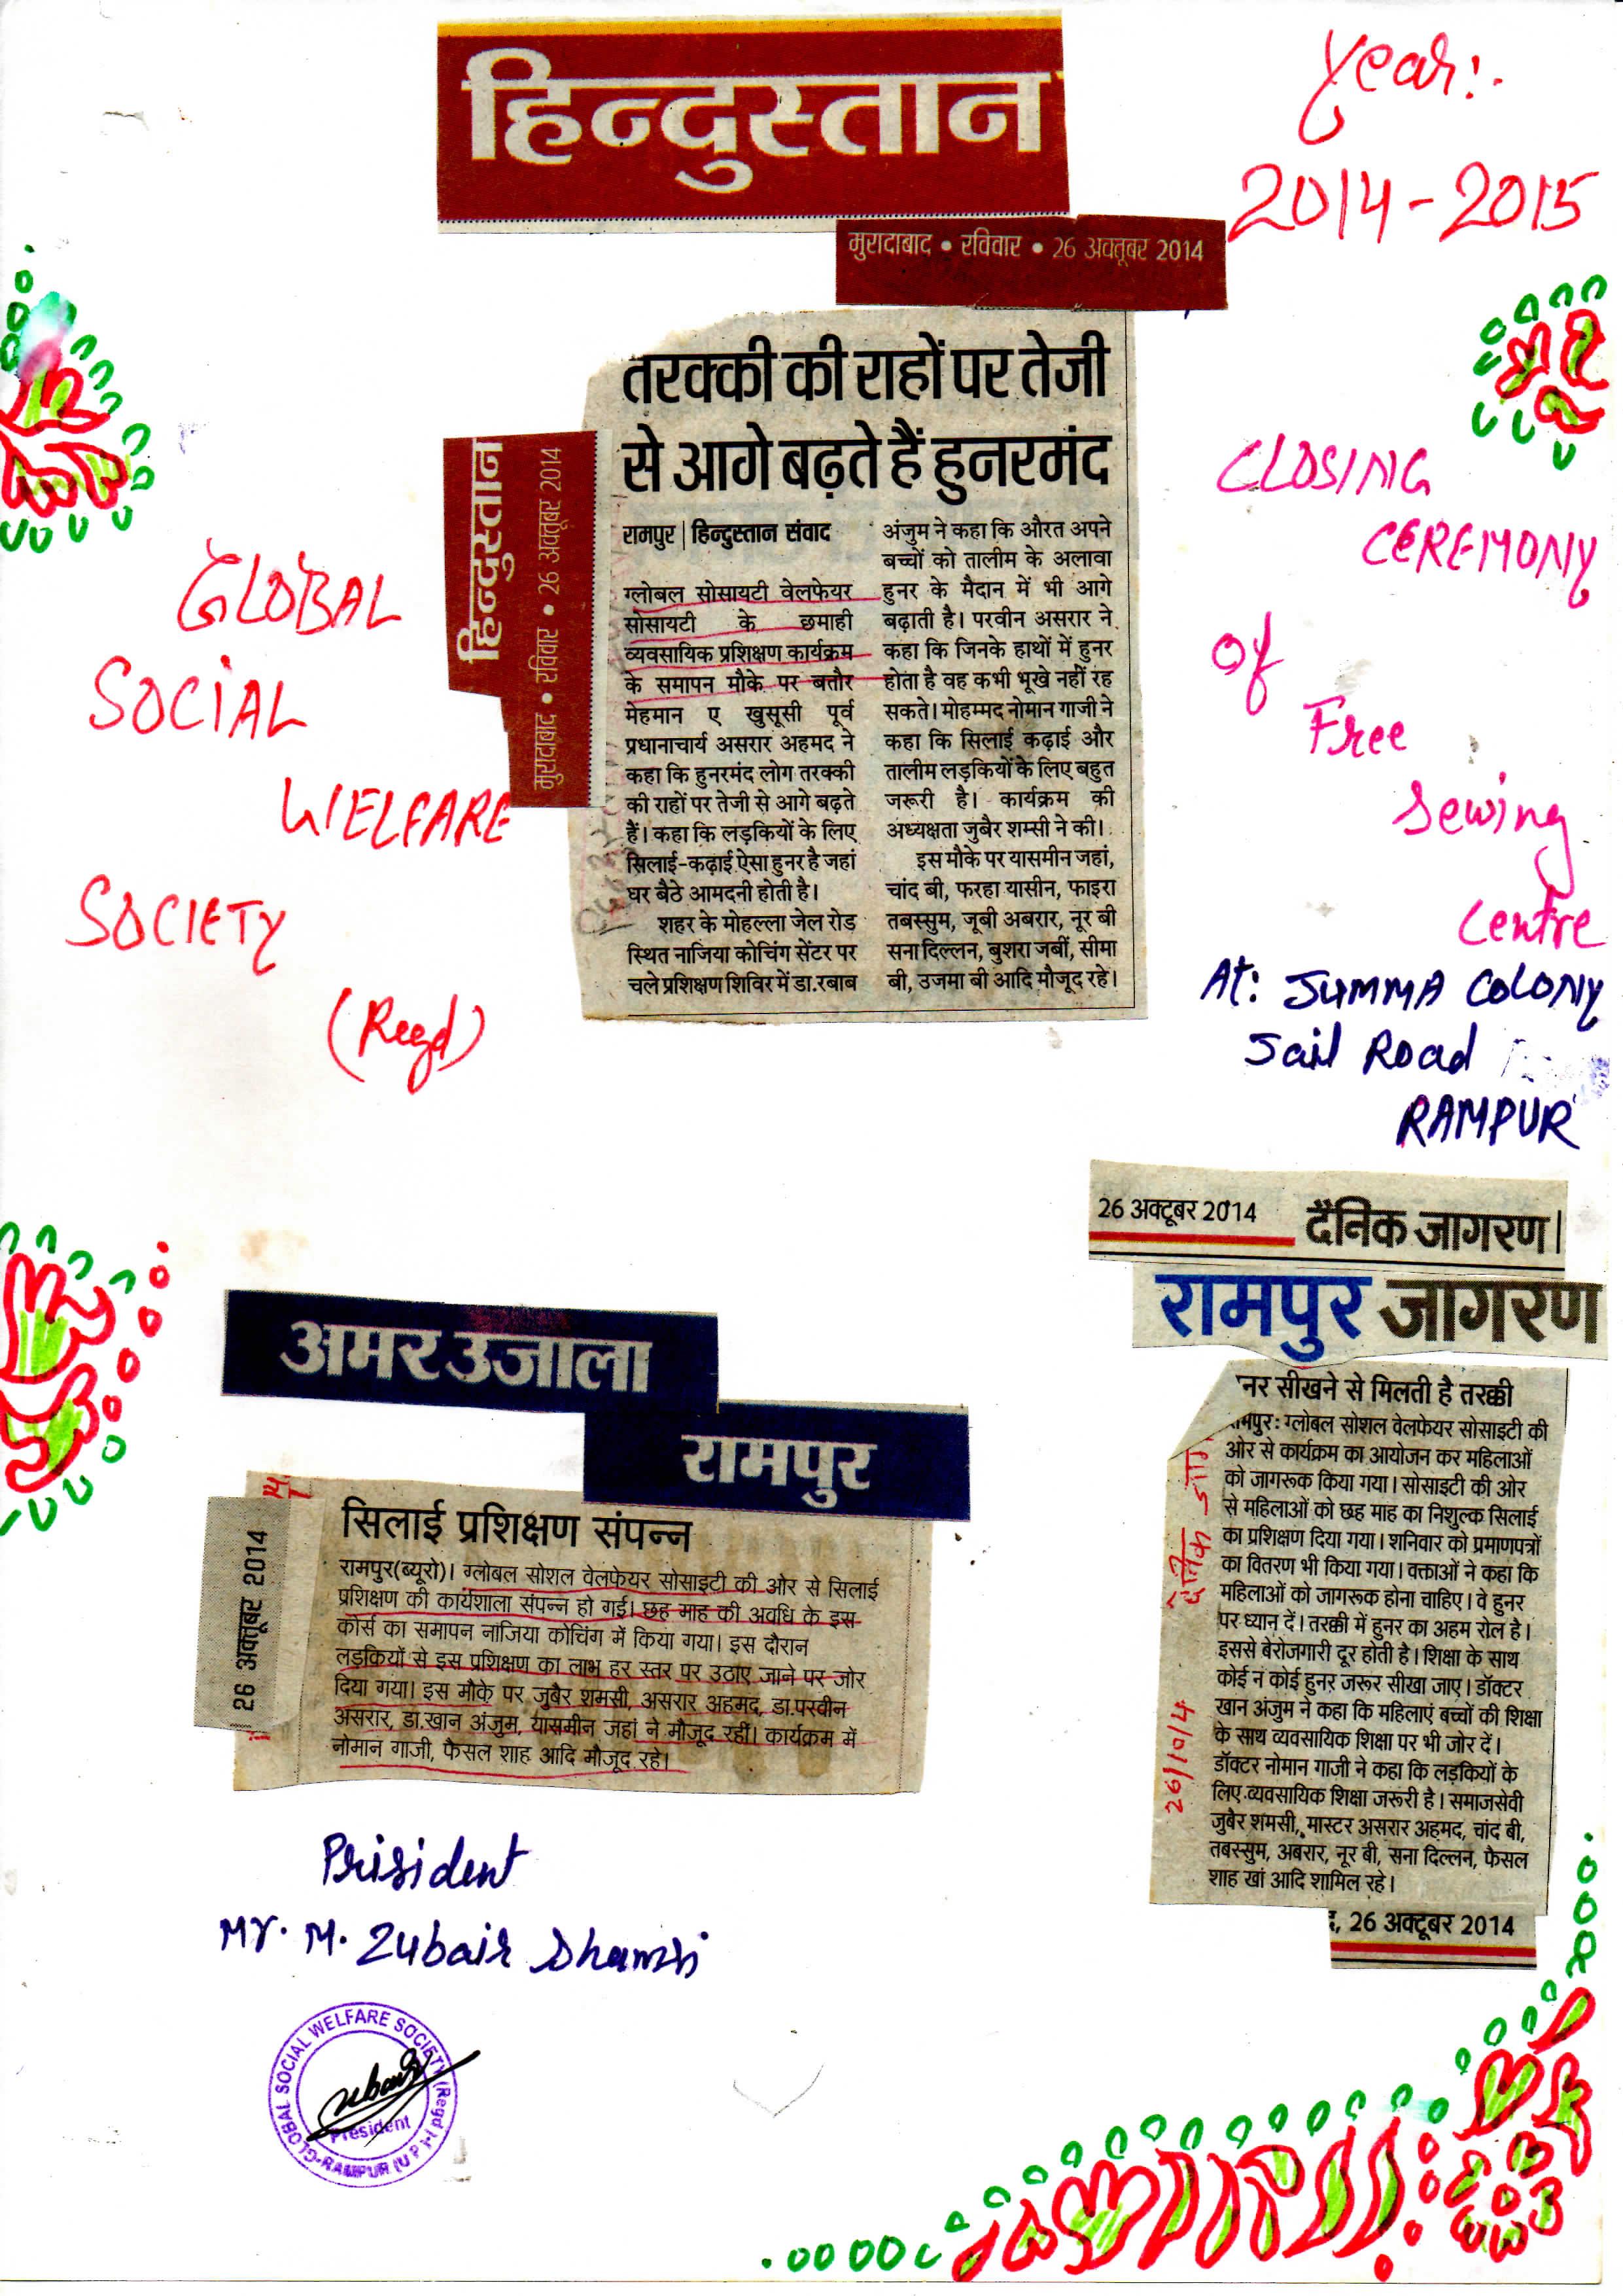 हिन्दुस्तान
मुरादाबाद • रविवार • 26 अक्तूबर 2014
Year:-
2014-2015
तरक्की की राहों पर तेजी
से आगे बढ़ते हैं हुनरमंद
हिन्दुस्तान
मुरादाबाद • रविवार • 26 अक्तूबर 2014
रामपुर | हिन्दुस्तान संवाद
ग्लोबल सोसायटी वेलफेयर
सोसायटी के छमाही
व्यवसायिक प्रशिक्षण कार्यक्रम
के समापन मौके पर बतौर
मेहमान ए खुसूसी पूर्व
प्रधानाचार्य असरार अहमद ने
कहा कि हुनरमंद लोग तरक्की
की राहों पर तेजी से आगे बढ़ते
हैं। कहा कि लड़कियों के लिए
सिलाई-कढ़ाई ऐसा हुनर है जहां
घर बैठे आमदनी होती है।
शहर के मोहल्ला जेल रोड
स्थित नाजिया कोचिंग सेंटर पर
चले प्रशिक्षण शिविर में डा.रबाब
अंजुम ने कहा कि औरत अपने
बच्चों को तालीम के अलावा
हुनर के मैदान में भी आगे
बढ़ाती है। परवीन असरार ने
कहा कि जिनके हाथों में हुनर
होता है वह कभी भूखे नहीं रह
सकते। मोहम्मद नोमान गाजी ने
कहा कि सिलाई कढ़ाई और
तालीम लड़कियों के लिए बहुत
जरूरी है। कार्यक्रम की
अध्यक्षता जुबैर शम्सी ने की।
इस मौके पर यासमीन जहां,
चांद बी, फरहा यासीन, फाइरा
तबस्सुम, जूबी अबरार, नूर बी
सना दिल्लन, बुशरा जबीं, सीमा
बी, उजमा बी आदि मौजूद रहे।
GLOBAL
SOCIAL
WELFARE
SOCIETY
(Regd)
CLOSING
CEREMONY
of
Free
Sewing
Centre
At: JUMMA COLONY
Jail Road
RAMPUR
अमर उजाला
रामपुर
26 अक्तूबर 2014
सिलाई प्रशिक्षण संपन्न
रामपुर(ब्यूरो)। ग्लोबल सोशल वेलफेयर सोसाइटी की ओर से सिलाई
प्रशिक्षण की कार्यशाला संपन्न हो गई। छह माह की अवधि के इस
कोर्स का समापन नाजिया कोचिंग में किया गया। इस दौरान
लड़कियों से इस प्रशिक्षण का लाभ हर स्तर पर उठाए जाने पर जोर
दिया गया। इस मौके पर जुबैर शमसी, असरार अहमद, डा.परवीन
असरार, डा.खान अंजुम, यासमीन जहां ने मौजूद रहीं। कार्यक्रम में
नोमान गाजी, फैसल शाह आदि मौजूद रहे।
26 अक्टूबर 2014 दैनिक जागरण
रामपुर जागरण
नर सीखने से मिलती है तरक्की
मपुर: ग्लोबल सोशल वेलफेयर सोसाइटी की
ओर से कार्यक्रम का आयोजन कर महिलाओं
को जागरूक किया गया। सोसाइटी की ओर
से महिलाओं को छह माह का निशुल्क सिलाई
का प्रशिक्षण दिया गया। शनिवार को प्रमाणपत्रों
का वितरण भी किया गया। वक्ताओं ने कहा कि
महिलाओं को जागरूक होना चाहिए। वे हुनर
पर ध्यान दें। तरक्की में हुनर का अहम रोल है।
इससे बेरोजगारी दूर होती है। शिक्षा के साथ
कोई न कोई हुनर जरूर सीखा जाए। डॉक्टर
खान अंजुम ने कहा कि महिलाएं बच्चों की शिक्षा
के साथ व्यवसायिक शिक्षा पर भी जोर दें।
डॉक्टर नोमान गाजी ने कहा कि लड़कियों के
लिए व्यवसायिक शिक्षा जरूरी है। समाजसेवी
जुबैर शमसी, मास्टर असरार अहमद, चांद बी,
तबस्सुम, अबरार, नूर बी, सना दिल्लन, फैसल
शाह खां आदि शामिल रहे।
दैनिक
26/10/4
26 अक्टूबर 2014
Prisident
Mr. M. Zubair Shamsi
GLOBAL SOCIAL WELFARE SOCIETY (Regd.)
President
RAMPUR (U P)